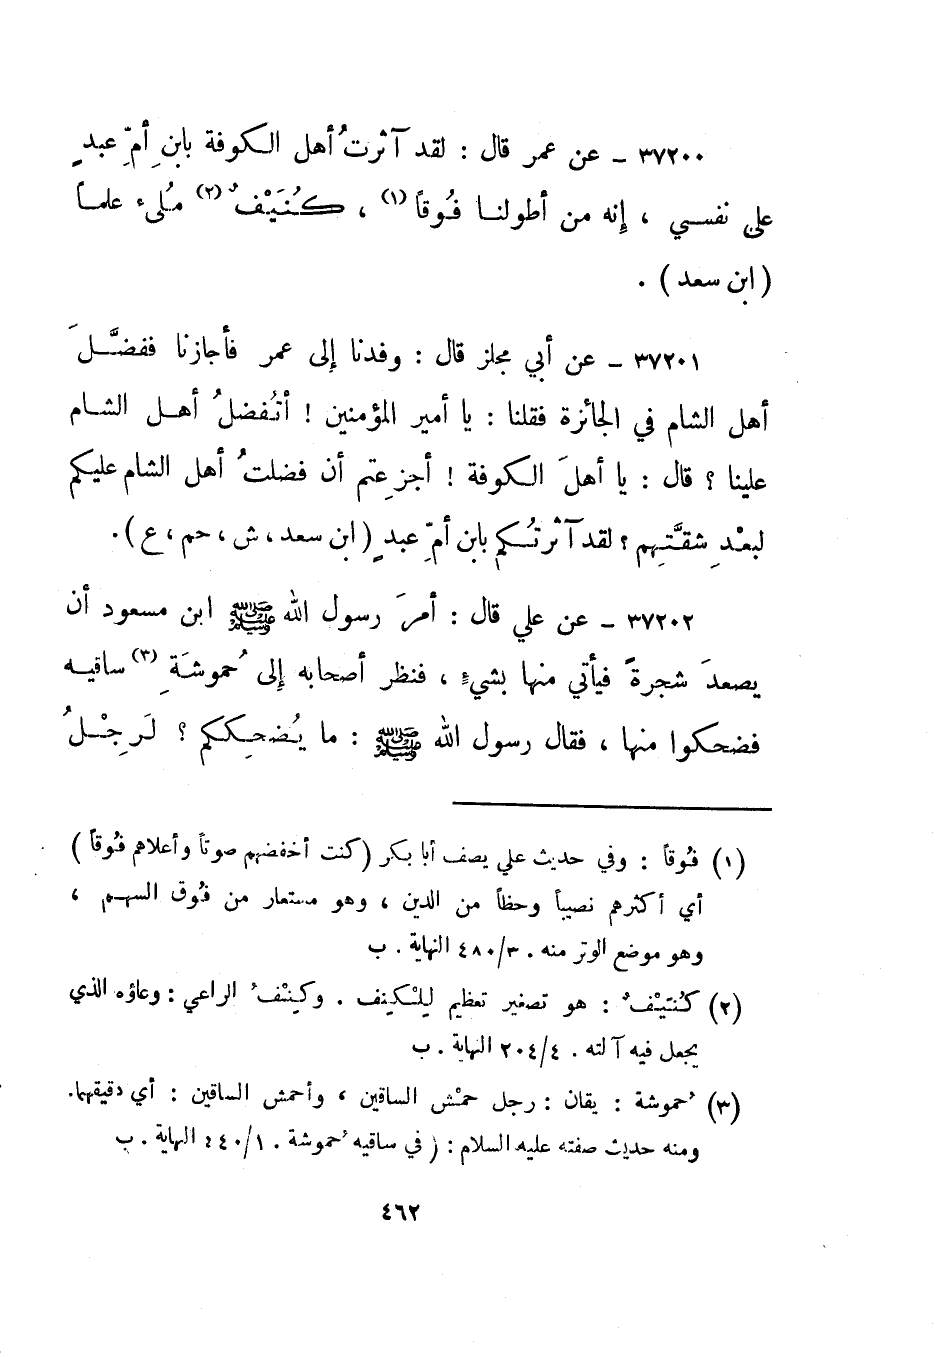 ٣٧٢٠٠ ـ عن عمر قال : لقد آثرتُ أهل الكوفة بابنِ أمِّ عبدٍ
على نفسي ، إنه من أطولنا فُوقاً (١) ، كُنَيْفٌ (٢) مُلىء علماً
( ابن سعد ) .
٣٧٢٠١ ـ عن أبي مجلز قال : وفدنا إلى عمر فأجازنا ففضَّلَ
أهل الشام في الجائزة فقلنا : يا أمير المؤمنين ! أتُفضلُ أهل الشام
علينا ؟ قال : يا أهلَ الكوفة ! أجزعتم أن فضلتُ أهل الشام عليكم
لبعْدِ شقتَّهِم ؟ لقد آثرتُكم بابن أمِّ عبدٍ ( ابن سعد ، ش ، حم ، ع ) .
٣٧٢٠٢ ـ عن علي قال : أمرَ رسول الله ﷺ ابن مسعود أن
يصعدَ شجرةً فيأتي منها بشيءٍ ، فنظر أصحابه إلى حُموشَةِ (٣) ساقيه
فضحكوا منها ، فقال رسول الله ﷺ : ما يُضحِككم ؟ لَرِجْلُ
(١) فُوقاً : وفي حديث علي يصف أبا بكر ( كنت أخفضهم صوتاً وأعلاهم فُوقاً )
أي أكثرهم نصيباً وحظاً من الدين ، وهو مستعار من فُوق السهم ،
وهو موضع الوتر منه . ٤٨٠/٣ النهاية . ب
(٢) كُنَيْفٌ : هو تصغير تعظيم لِلْكِنِف . وكِنْفُ الراعي : وعاؤه الذي
يجعل فيه آلته . ٢٠٤/٤ النهاية . ب
(٣) حُموشة : يقان : رجل حمْش الساقين ، وأحمش الساقين : أي دقيقهما.
ومنه حديث صفته عليه السلام : ( في ساقيه حُموشة . ٤٤٠/١ النهاية . ب
٤٦٢